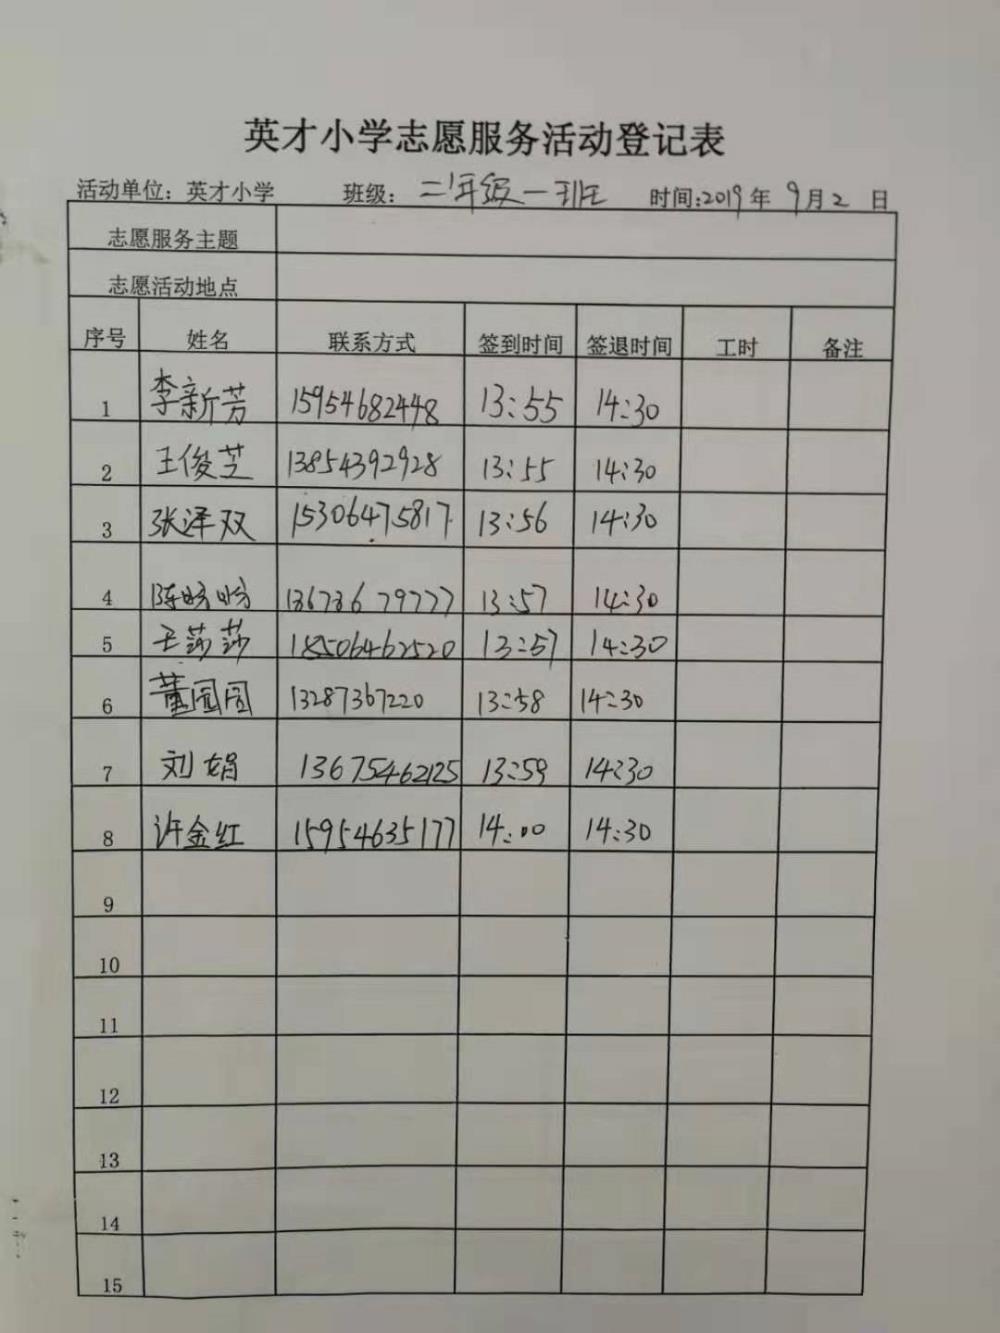 英才小学志愿服务活动登记表
活动单位：英才小学 班级：二年级一班 时间:2019年9月2日
志愿服务主题
志愿活动地点
序号 姓名 联系方式 签到时间 签退时间 工时 备注
1 李新芳 15954682448 13:55 14:30
2 王俊芝 13854392928 13:55 14:30
3 张泽双 15306475817 13:56 14:30
4 陈 13673679777 13:57 14:30
5 王莎莎 18506462520 13:57 14:30
6 董圆圆 13287367220 13:58 14:30
7 刘娟 13675462125 13:59 14:30
8 许金红 15954635177 14:00 14:30
9
10
11
12
13
14
15